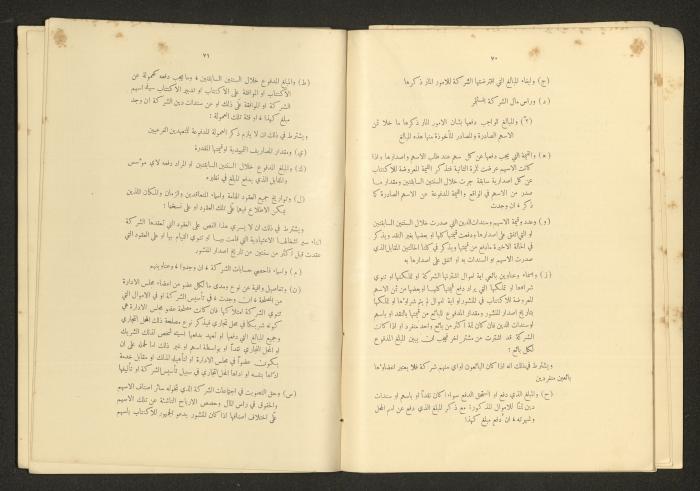 ٧٠
(ج) وايفاء المبالغ التي اقترضتها الشركة للامور المار ذكرها
(د) ورأس مال الشركة المستثمر
(٣) والمبالغ الواجب دفعها بشان الامور المار ذكرها ما خلا ثمن
الاسهم الصادرة والمصادر المأخوذة منها هذه المبالغ
(ه) والقيمة التي يجب دفعها عن كل سهم عند طلب الاسهم واصدارها واذا
كانت الاسهم عرضت للمرة الثانية فتذكر القيمة المعروضة للاكتتاب
عن كل اصدارية سابقة جرت خلال السنتين السابقتين ومقدار ما
صدر من الاسهم في الواقع والقيمة المدفوعة عن الاسهم الصادرة كما
ذكر ، ان وجدت
(و) وعدد وقيمة الاسهم وسندات الدين التي صدرت خلال السنتين السابقتين
او التي اتفق على اصدارها ودفعت قيمتها كلها او بعضها بغير النقد ويذكر
في الحالة الاخيرة مادفع من قيمتها ويذكر في كلتا الحالتين المقابل الذي
صدرت الاسهم او السندات به او اتفق على اصدارها به
(ز) واسماء وعناوين بائعي اية اموال اشترتها الشركة او تملكتها او تنوي
شراءها او تملكها التي يراد دفع قيمتها كلها او بعضها من ثمن الاسهم
المعروضة للاكتتاب في المنشور او اية اموال لم يتم شراؤها او تملكها
بتاريخ اصدار المنشور ومقدار المدفوع للبائع من قيمتها بالنقد او باسهم
او سندات الدين فان كان ثمة اكثر من بائع واحد منفرد او اذا كانت
الشركة قد اشترت من مشتر اخر فيجب ان يبين المبلغ المدفوع
لكل بائع :
ويشترط في ذلك انه اذا كان البائعون او اي منهم شركة فلا يعتبر اعضاؤها
بائعين منفردين
(ح) والمبلغ الذي دفع او استحق الدفع سواء اكان نقداً او باسهم او سندات
دين ثمناً للاموال المذكورة مع ذكر المبلغ الذي دفع عن اسم المحل
وشهرته ، ان دفع مبلغ كهذا
٧١
(ط) والمبلغ المدفوع خلال السنتين السابقتين ، وما يجب دفعه كعمولة عن
الاكتتاب او الموافقة على الاكتتاب او تدبير الاكتتاب سيف اسهم
الشركة او الموافقة على ذلك او عن سندات دين الشركة ان وجد
مبلغ كهذا ، او فئة تلك العمولة :
ويشترط في ذلك ان لا يلزم ذكر العمولة المدفوعة للمتعهدين الفرعيين
(ي) ومقدار المصاريف التمهيدية او قيمتها المقدرة
(ك) والمبلغ المدفوع خلال السنتين السابقتين او المراد دفعه لاي مؤسس
والمقابل الذي يدفع المبلغ في نظيره
(ل) وتواريخ جميع العقود الهامة واسماء المتعاقدين والزمان والمكان اللذين
يمكن الاطلاع فيها على تلك العقود او على نسخها :
ويشترط في ذلك ان لا يسري هذا النص على العقود التي تعقدها الشركة
اثناء سير اشغالها الاعتيادية التي قامت بها او تنوي القيام بها او على العقود التي
عقدت قبل اكثر من سنتين من تاريخ اصدار المنشور
(م) واسماء فاحصي حسابات الشركة ، ان وجدوا ، وعناوينهم
(ن) وتفاصيل وافية عن نوع ومدى ما لكل عضو من اعضاء مجلس الادارة
من المصلحة ، ان وجدت ، في تأسيس الشركة او في الاموال التي
تنوي الشركة امتلاكها فان كانت مصلحة عضو مجلس الادارة هي
كونه شريكاً في محل تجاري فيذكر نوع مصلحة ذلك المحل التجاري
وجميع المبالغ التي دفعها او تعهد بدفعها اليه شخص لذلك الشريك
او المحل التجاري نقداً او بواسطة اسهم او غير ذلك اما لحمله على ان
يكون عضواً في مجلس الادارة او لتأهيله لذلك او مقابل خدمة
اداها بنفسه او اداها المحل التجاري في سبيل تأسيس الشركة او تأليفها
(س) وحق التصويت في اجتماعات الشركة الذي تخوله سائر اصناف الاسهم
والحقوق في رأس المال وحصص الارباح الناشئة عن تلك الاسهم
على اختلاف اصنافها اذا كان المنشور يدعو الجمهور للاكتتاب باسهم